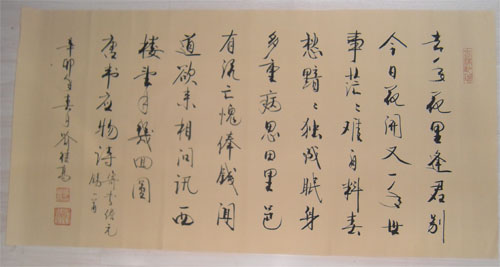 去年花里逢君别
今日花開又一年世
事茫々難自料春
愁黯々独成眠身
多疾病思田里邑
有流亡愧俸钱闻
道欲来相问讯西
楼望月幾回圆
唐韦应物诗寄李儋元
锡一首
辛卯年春月